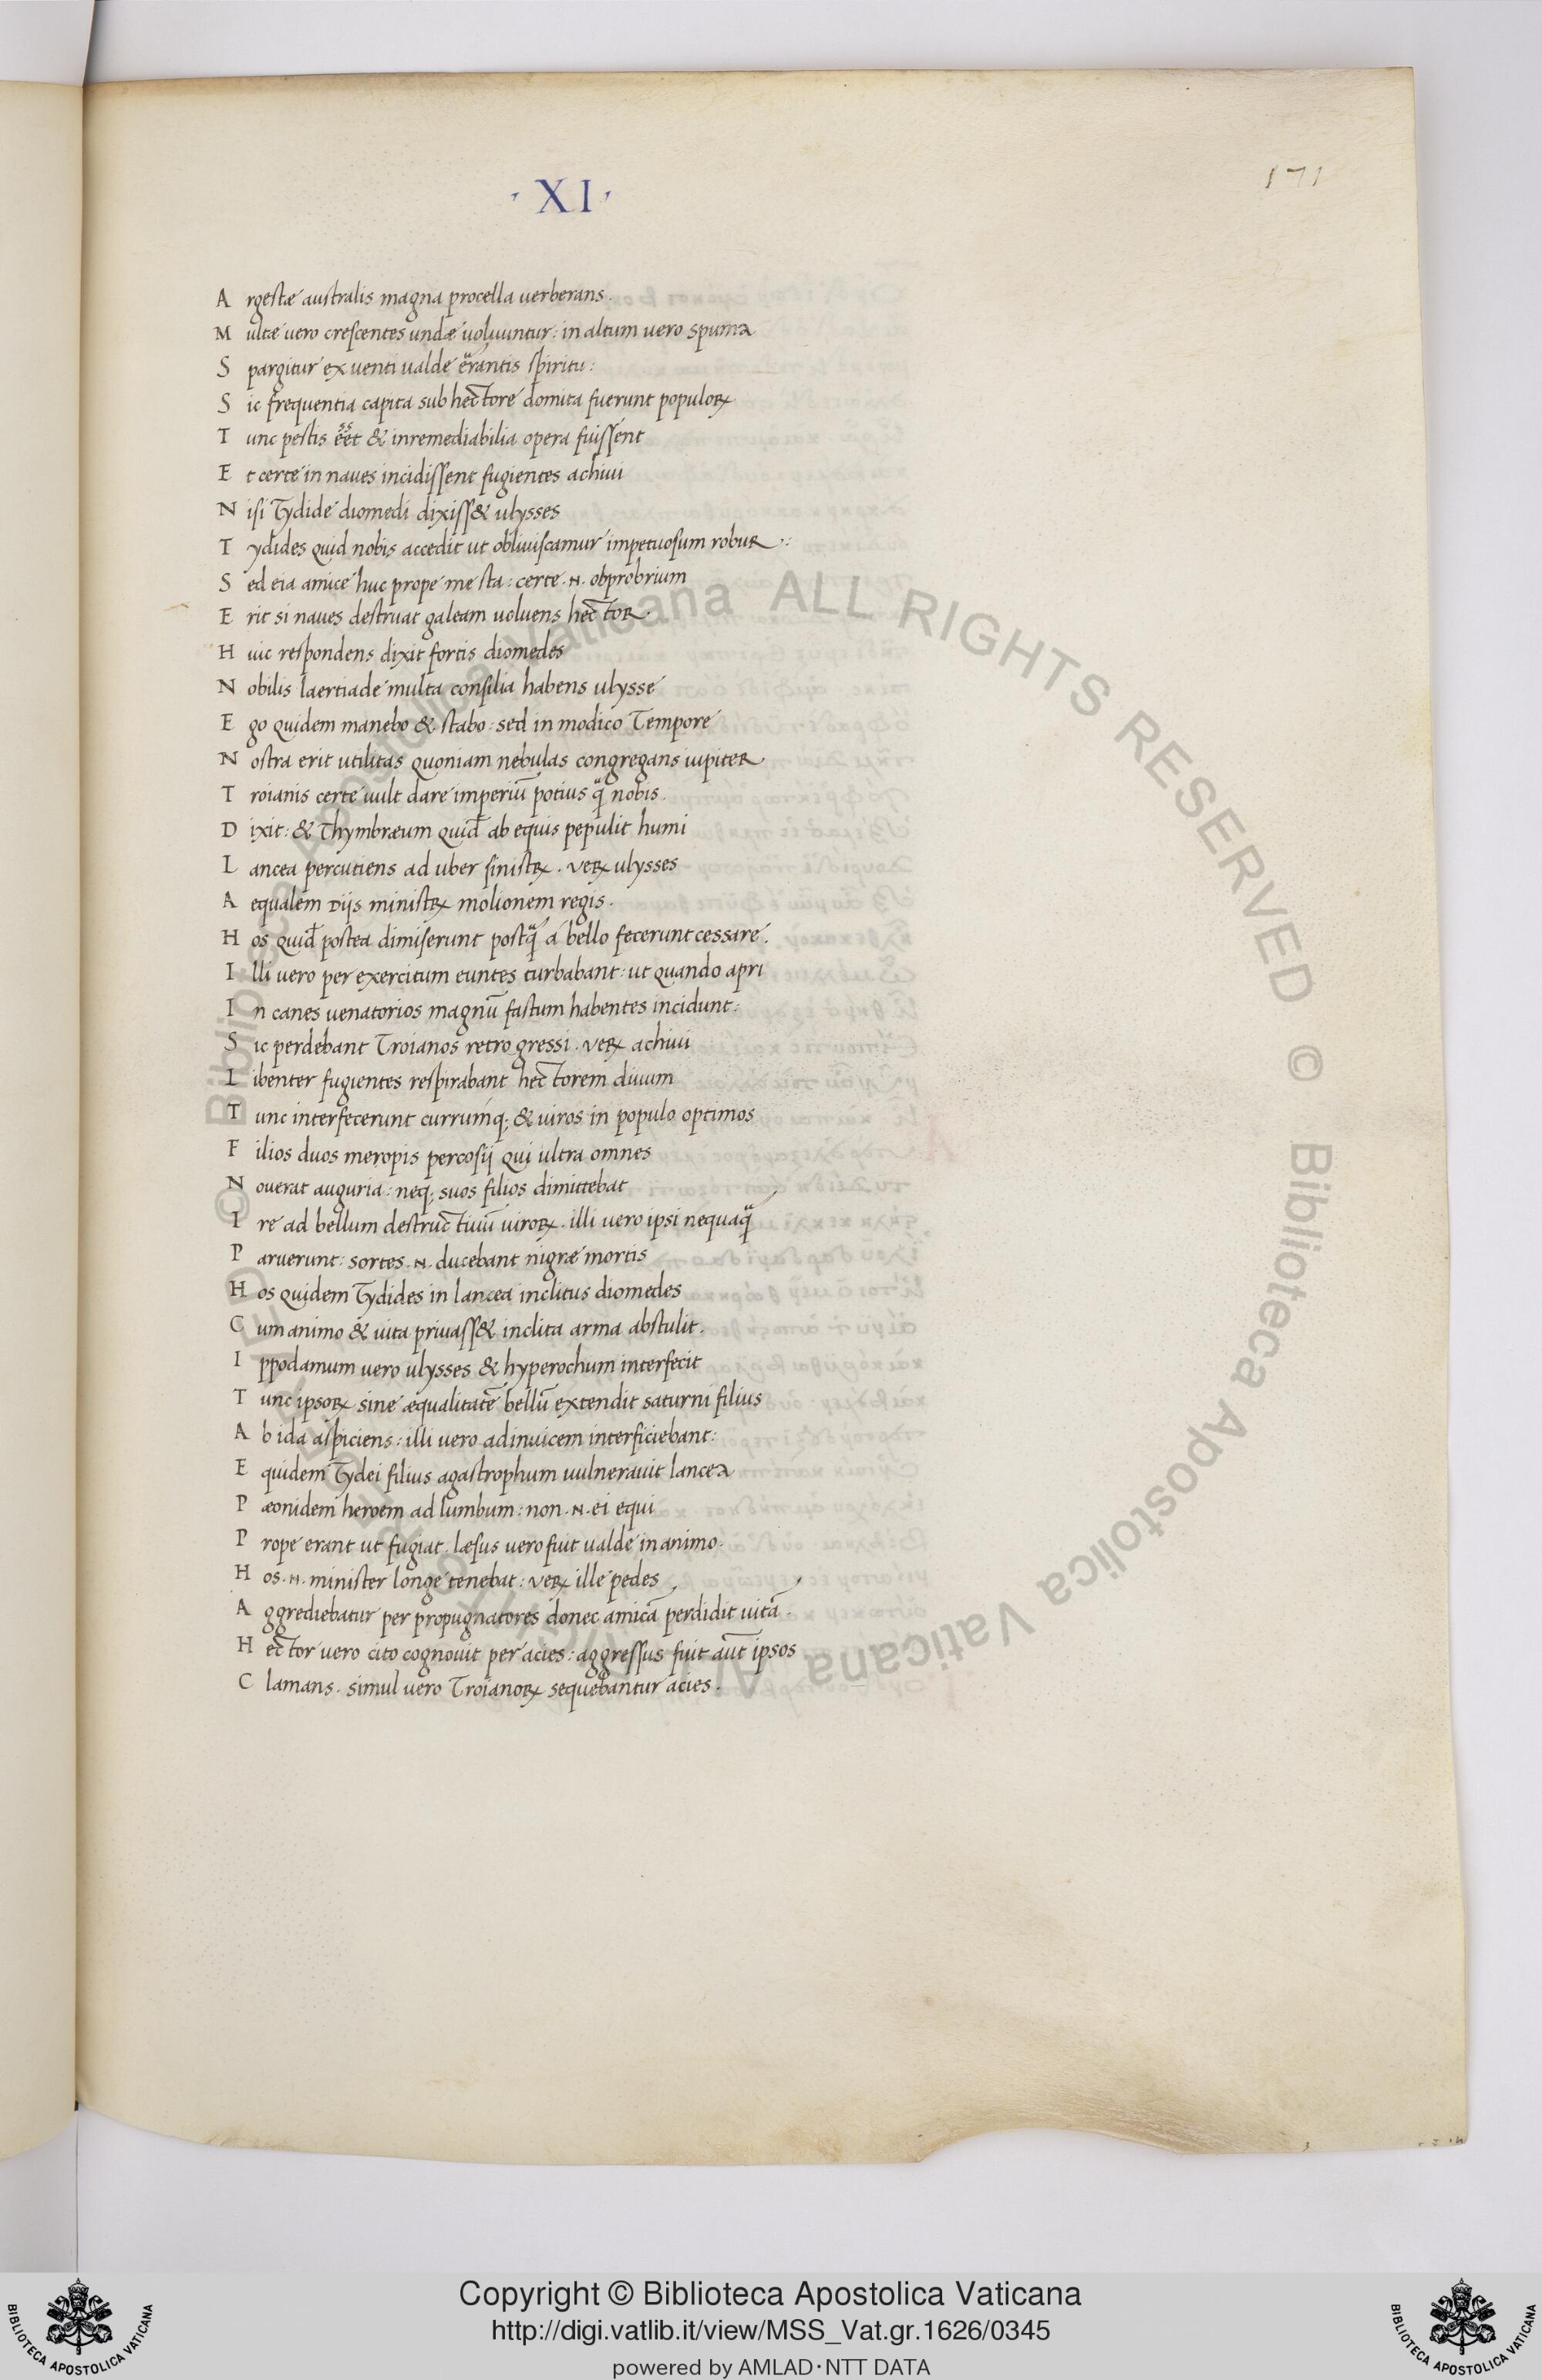 · XI ·
171
A rgestæ australis magna procella uerberans.
M ultæ uero crescentes undæ uoluuntur: in altum uero spuma
S pargitur ex uenti ualde errantis spiritu:
S ic frequentia capita sub hectore domita fuerunt populoꝝ
T unc pestis eet & inremediabilia opera fuissent
E t certe in naues incidissent fugientes achiui
N isi Tydide diomedi dixiss& ulysses
T ydides quid nobis accedit ut obliuiscamur impetuosum robur.:
S ed eia amice huc prope me sta: certe .N. obprobrium
E rit si naues destruat galeam uoluens hector.
H uic respondens dixit fortis diomedes
N obilis laertiade multa consilia habens ulysse
E go quidem manebo & stabo: sed in modico Tempore
N ostra erit utilitas quoniam nebulas congregans iupiter
T roianis certe uult dare imperiū potius q̃ nobis.
D ixit: & Thymbræum quid̄ ab equis pepulit humi
L ancea percutiens ad uber sinistꝝ. veꝝ ulysses
A equalem Diis ministꝝ molionem regis.
H os quid̄ postea dimiserunt postq̃ a bello fecerunt cessare.
I lli uero per exercitum euntes turbabant: ut quando apri
I n canes uenatorios magnū fastum habentes incidunt:
S ic perdebant Troianos retro gressi. veꝝ achiui
L ibenter fugientes respirabant hectorem diuum
T unc interfecerunt currumq; & uiros in populo optimos
F ilios duos meropis percosij qui ultra omnes
N ouerat auguria: neq; suos filios dimittebat
I re ad bellum destructiuū uiroꝝ. illi uero ipsi nequaq̃
P aruerunt: sortes .N. ducebant nigræ mortis
H os quidem Tydides in lancea inclitus diomedes
C um animo & uita priuass& inclita arma abstulit.
I ppodamum uero ulysses & hyperochum interfecit
T unc ipsoꝝ sine æqualitatē bellū extendit saturni filius
A b ida aspiciens: illi uero adinuicem interficiebant:
E quidem Tydei filius agastrophum uulnerauit lancea
P æonidem heroem ad lumbum: non .N. ei equi
P rope erant ut fugiat. læsus uero fuit ualde in animo.
H os .N. minister longe tenebat: veꝝ ille pedes
A ggrediebatur per propugnatores donec amicā perdidit uitā.
H ector uero cito cognouit per acies: aggressus fuit aut̄ ipsos
C lamans. simul uero Troianoꝝ sequebantur acies.
© Biblioteca Apostolica Vaticana ALL RIGHTS RESERVED © Biblioteca Apostolica Vaticana ALL RIGHTS RESERVED
Copyright © Biblioteca Apostolica Vaticana
http://digi.vatlib.it/view/MSS_Vat.gr.1626/0345
powered by AMLAD·NTT DATA
BIBLIOTECA APOSTOLICA VATICANA
BIBLIOTECA APOSTOLICA VATICANA